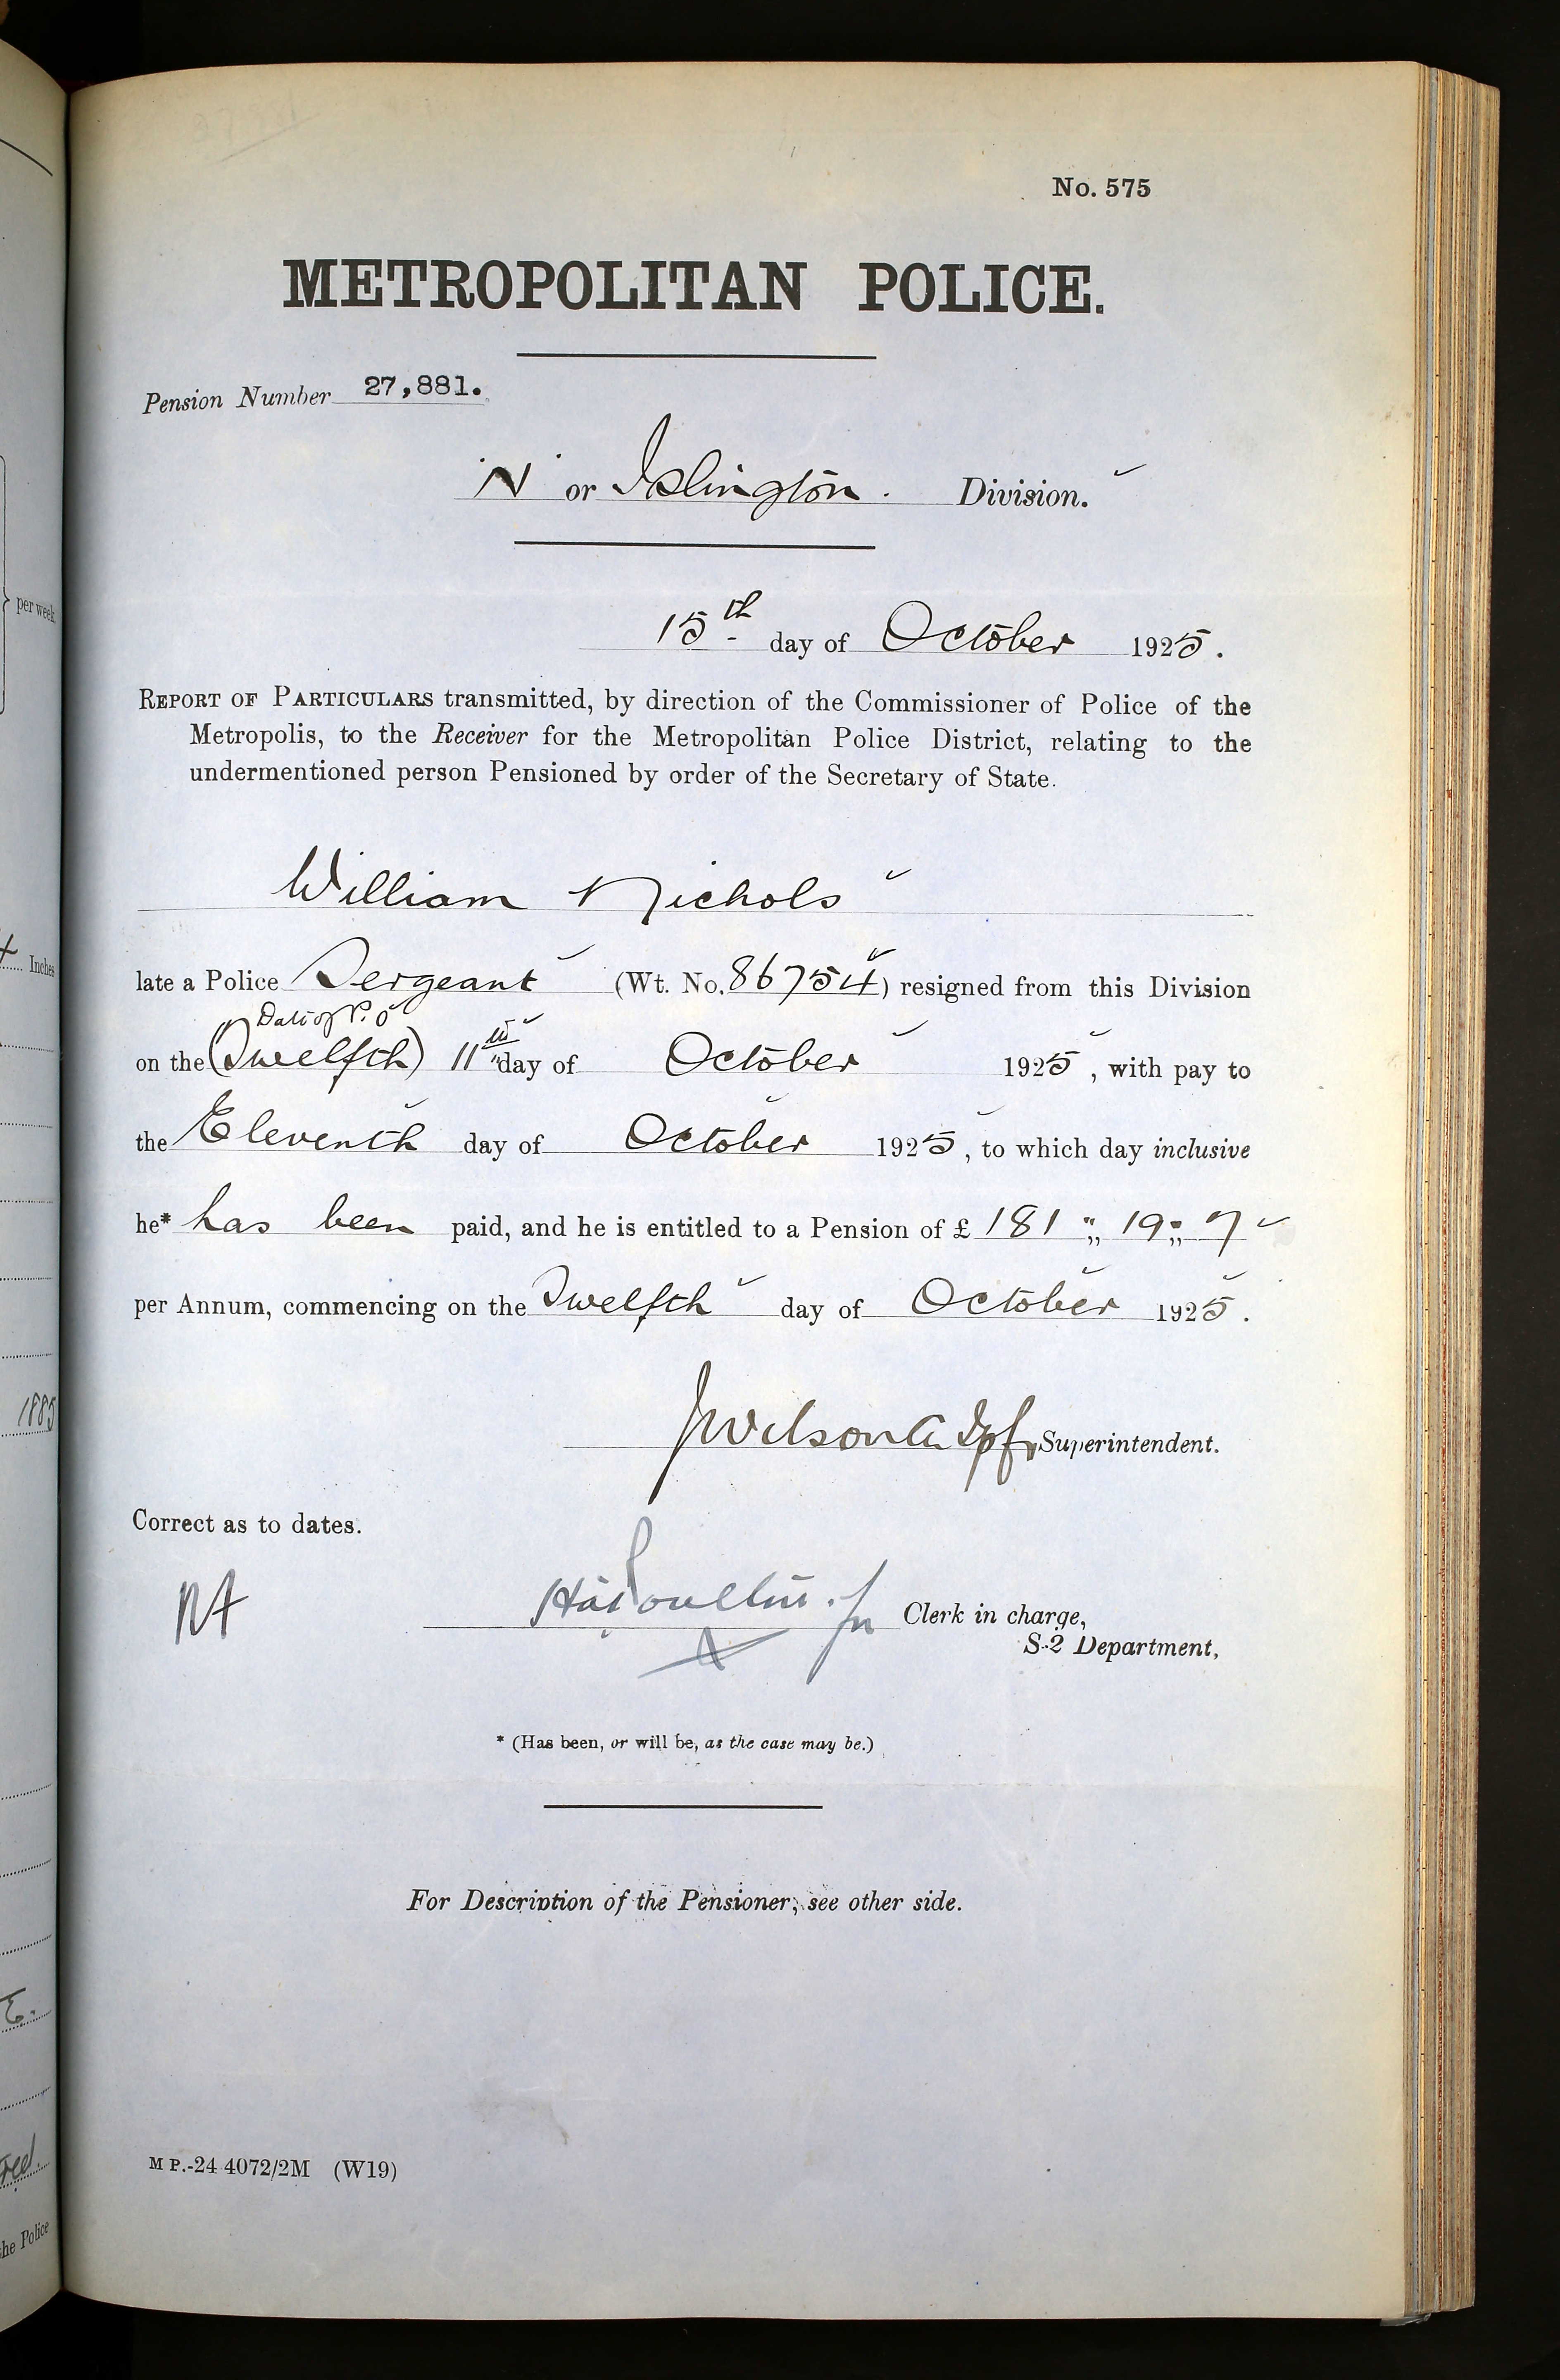 No. 575
METROPOLITAN POLICE.
Pension Number 27,881.
"N" or Islington. Division.
15th day of October 1925.
REPORT OF PARTICULARS transmitted, by direction of the Commissioner of Police of the
Metropolis, to the Receiver for the Metropolitan Police District, relating to the
undermentioned person Pensioned by order of the Secretary of State.
William Nichols
late a Police Sergeant (Wt. No. 86754) resigned from this Division
Date of P.O
on the (Twelfth) 11th day of October 1925, with pay to
the Eleventh day of October 1925, to which day inclusive
he* has been paid, and he is entitled to a Pension of £ 181 " 19 " 7
per Annum, commencing on the Twelfth day of October 1925.
JWilson Superintendent.
Correct as to dates.
Clerk in charge,
S-2 Department,
* (Has been, or will be, as the case may be.)
For Description of the Pensioner, see other side.
M P.-24 4072/2M (W19)
per week
Inches
1885
the Police